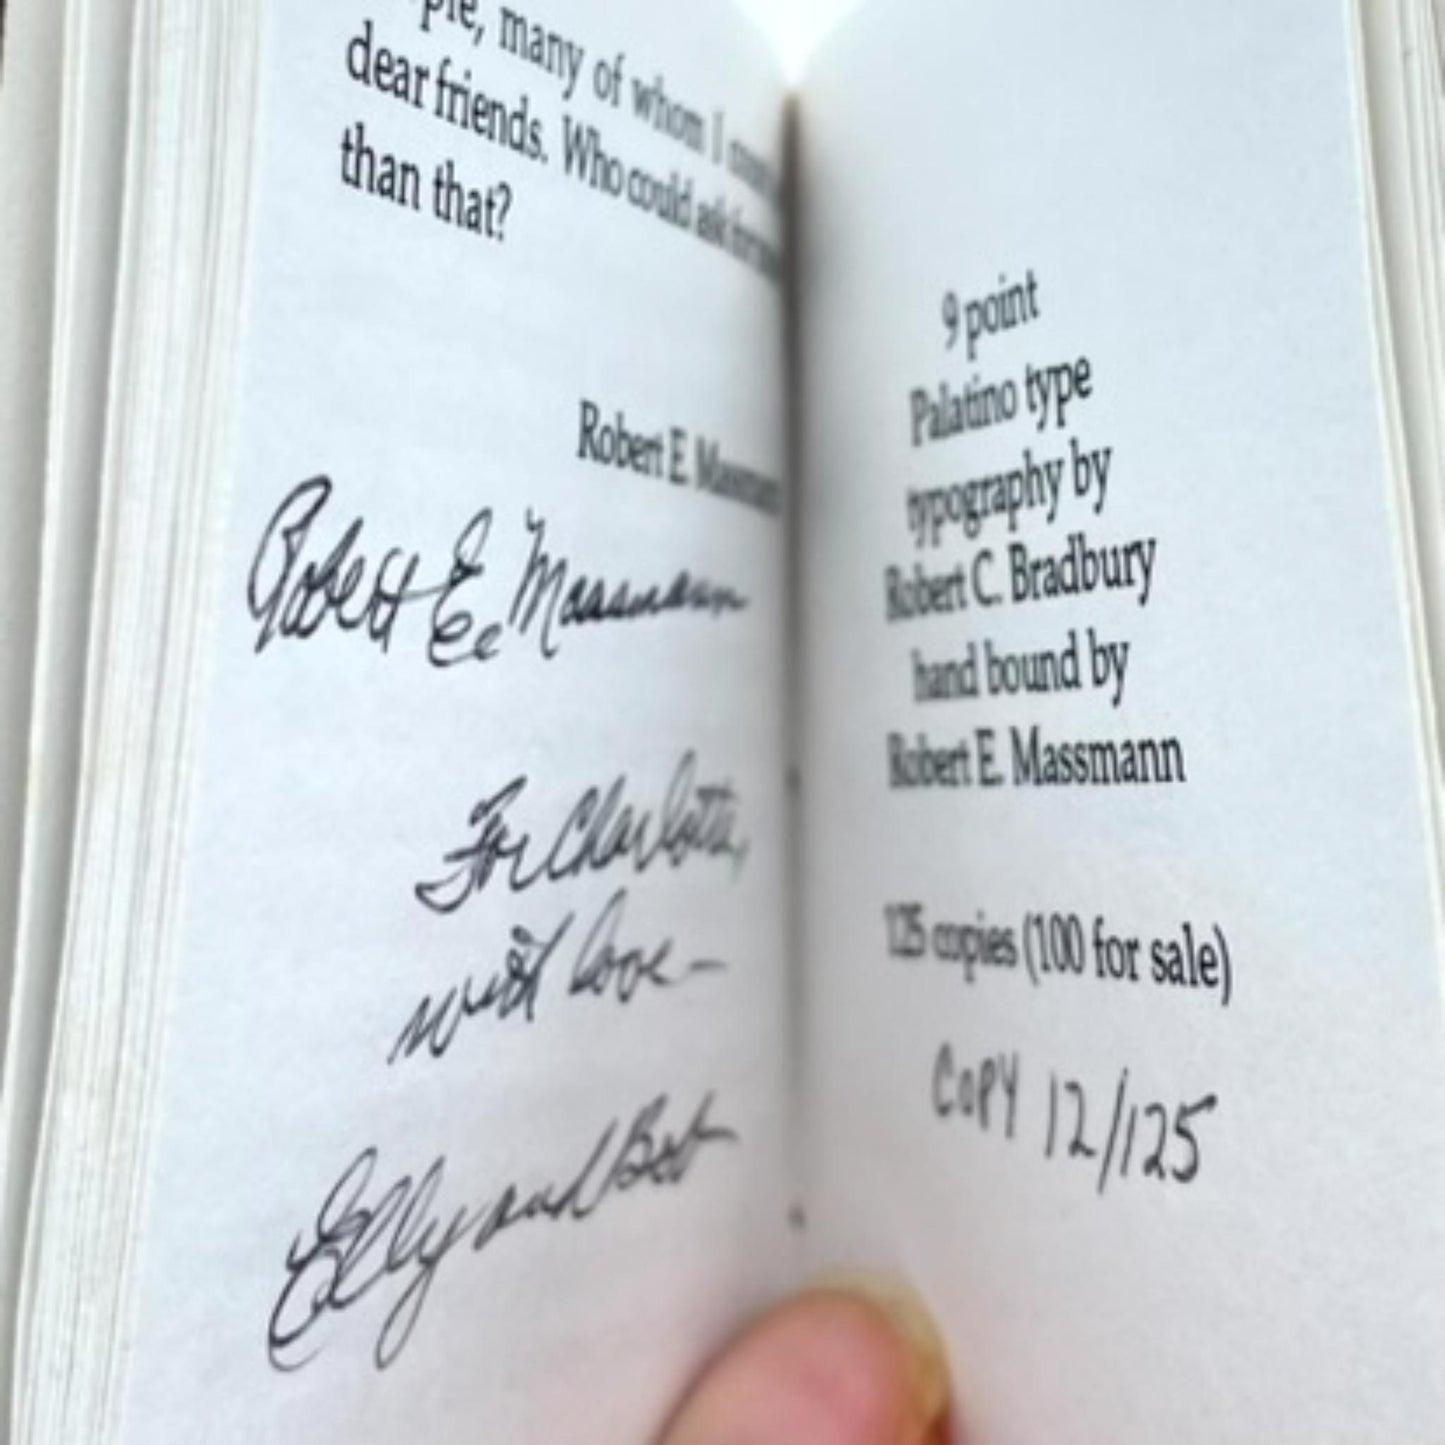 many of whom I
dear friends. Who could ask for
than that?
Robert E. Massmann
Robert E. Massmann
For Charlotte,
with love –
Elly and Bob
9 point
Palatino type
typography by
Robert C. Bradbury
hand bound by
Robert E. Massmann
125 copies (100 for sale)
COPY 12/125